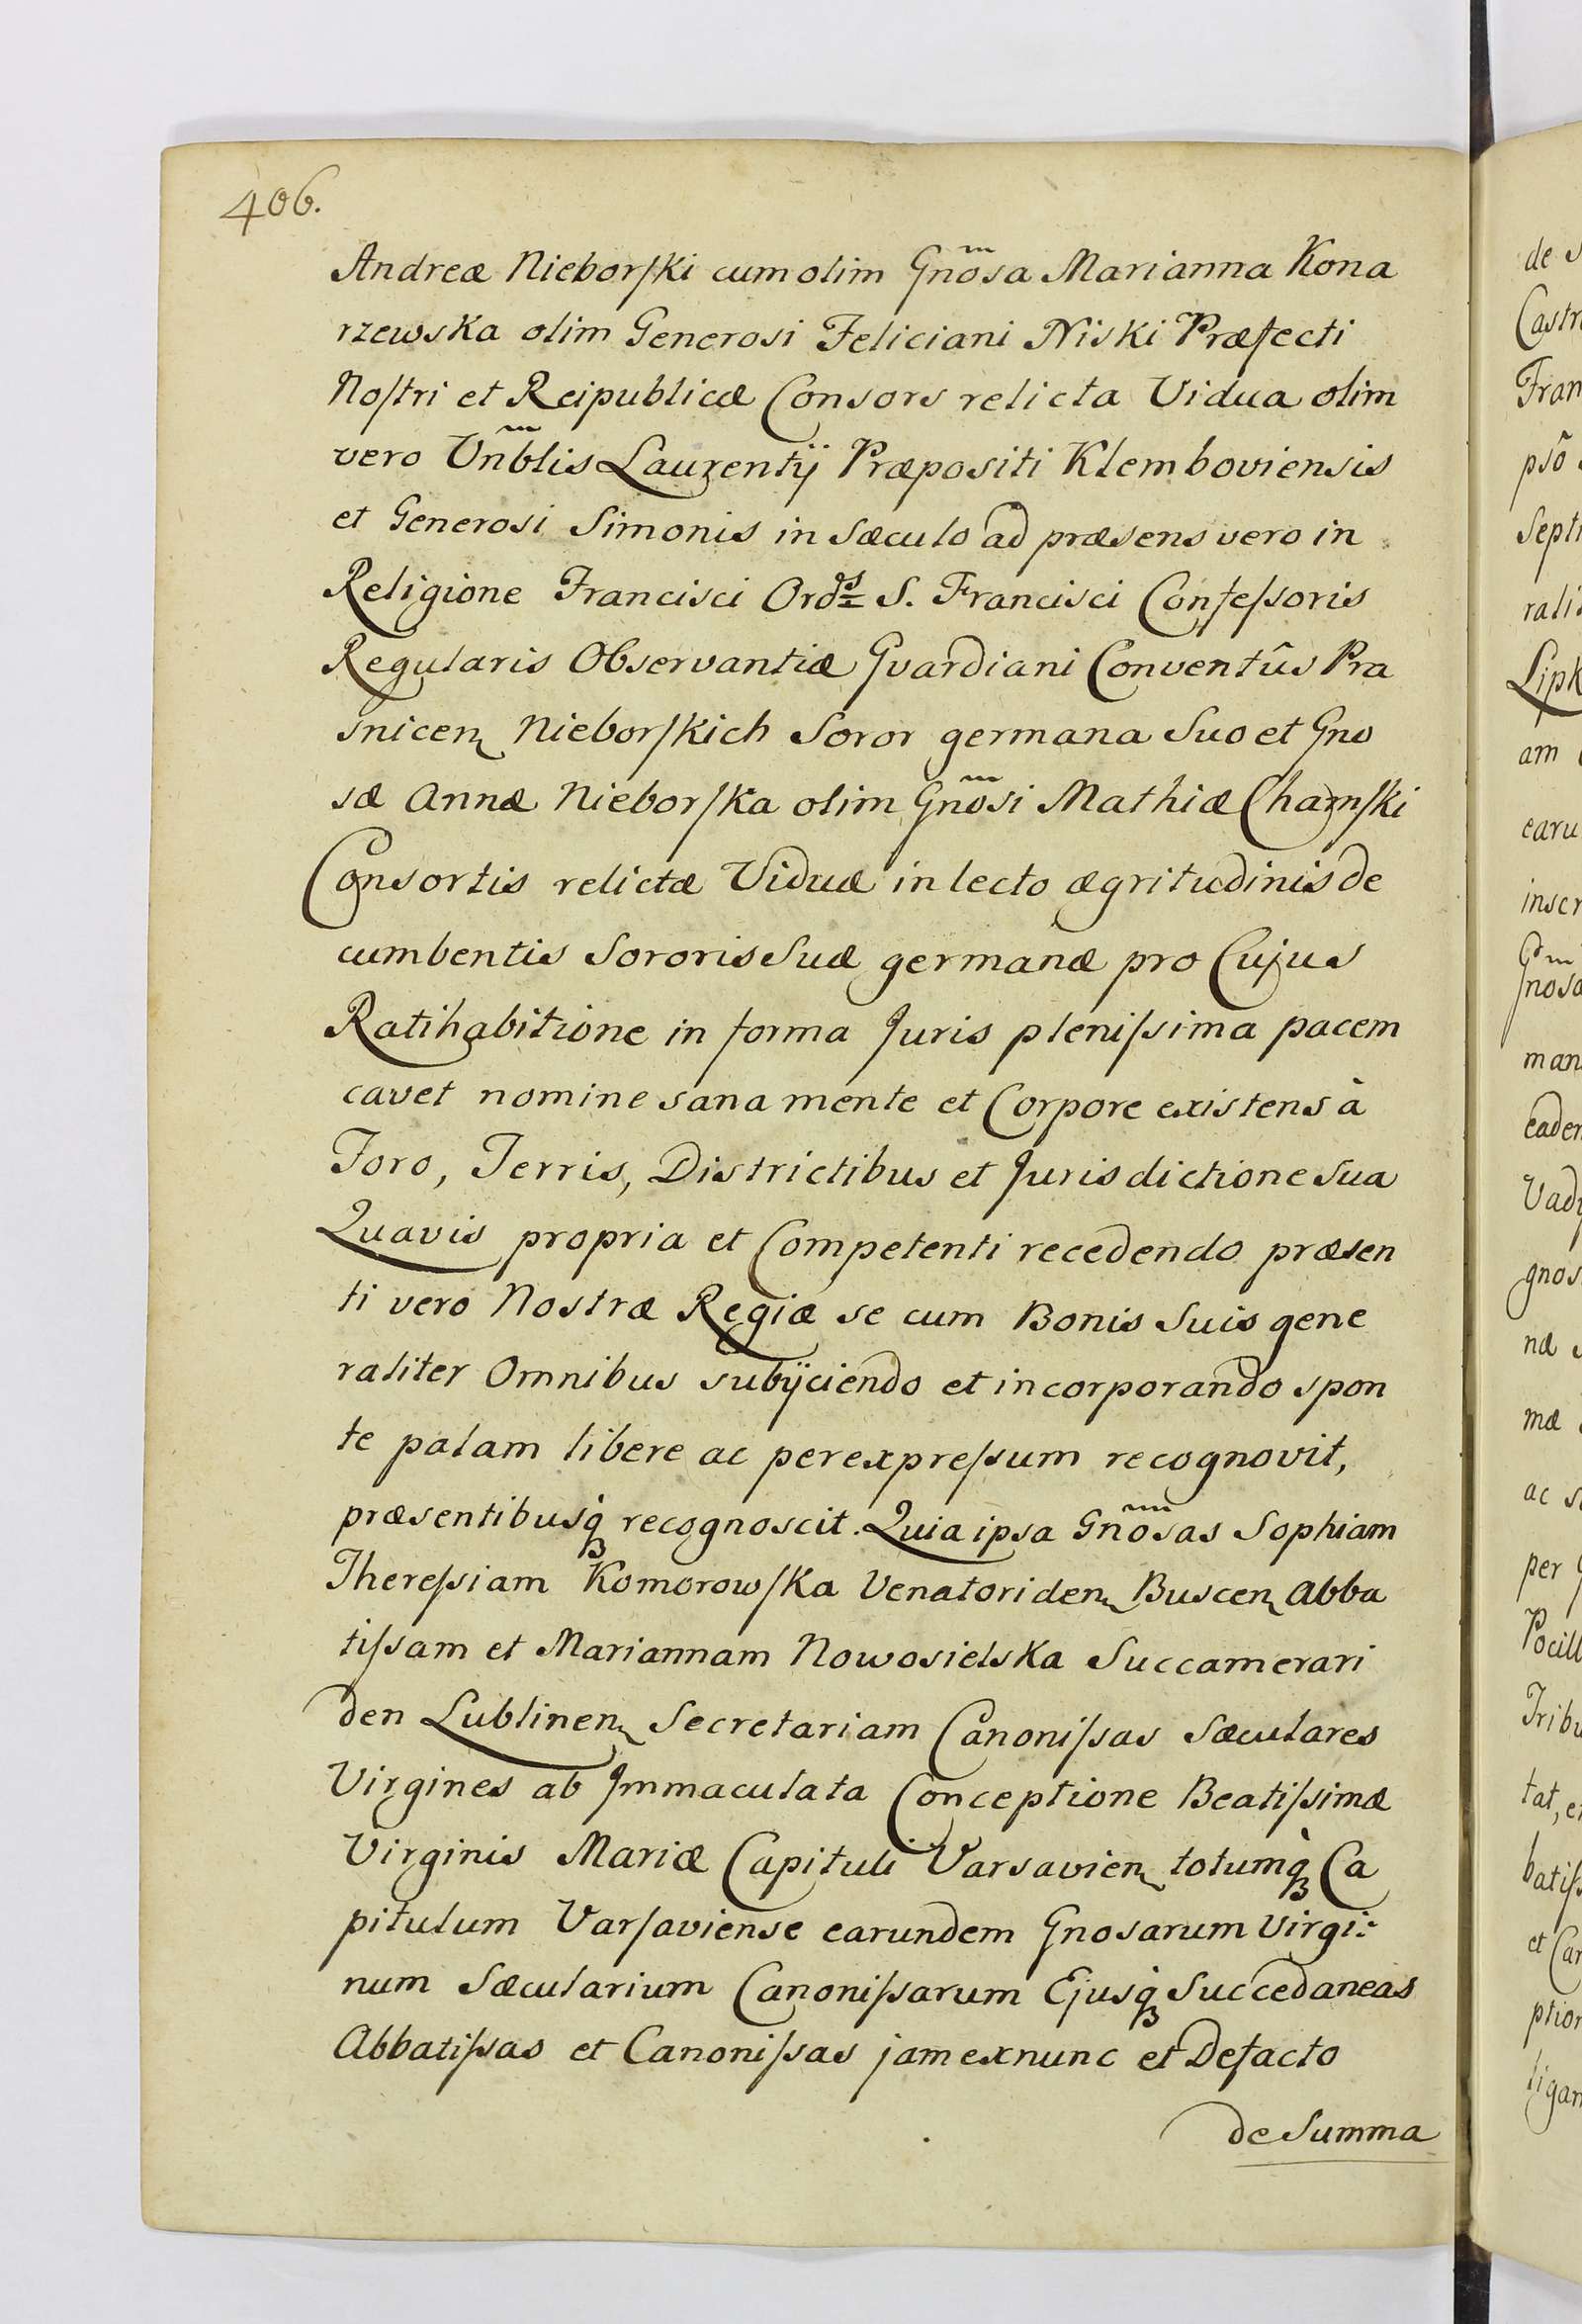 406.
Andreæ Nieborſki cum olim Gnõsa Marianna Kona
rzewska olim Generosi Feliciani Niski Præfecti
Noſtri et Reipublicæ Consors relicta Vidua olim
vero Vñblis Laurentÿ Præpositi Klemboviensis
et Generosi Simonis in Sæculo ad præsens vero in
Religione Francisci Ordˢ S. Francisci Confeſsoris
Regularis Observantiæ Gvardiani Conventûs Pra
snicen Nieborſkich Soror germana Suo et Gno
sæ Annæ Nieborſka olim Gnõsi Mathiæ Charnſki
Consortis relictæ Viduæ in lecto ægritudinis de
cumbentis Sororis Suæ germanæ pro Cujus
Ratihabitione in forma Juris pleniſsima pacem
cavet nomine sana mente et Corpore existens à
Foro, Terris, Districtibus et Jurisdictione Sua
Quavis propria et Competenti recedendo præsen
ti vero Nostræ Regiæ se cum Bonis Suis gene
raliter Omnibus subÿciendo et incorporando spon
te palam libere ac per expreſsum recognovit,
præsentibusq́ recognoscit. Quia ipsa Gnõsas Sophiam
Thereſsiam Komorowſka Venatoriden Buscen Abba
tiſsam et Mariannam Nowosielska Succamerari
den Lublinen Secretariam Canoniſsas Sæculares
Virgines ab Immaculata Conceptione Beatiſsimæ
Virginis Mariæ Capituli Varsavien totumq́ Ca
pitulum Varſaviense earundem Gnosarum Virgi:
num Sæcularium Canoniſsarum Ejusq́ Succedaneas
Abbatiſsas et Canoniſsas jam exnunc et Defacto
de Summa
de
Castr
Fran
psõ
Septi
ralit
Lipk
am
earu
inscr
Gnosa
man
eaden
Vady
gnos
næ
mæ
ac
per
Pocill
Tribu
tat, e
batiſs
et Can
ption
ligan